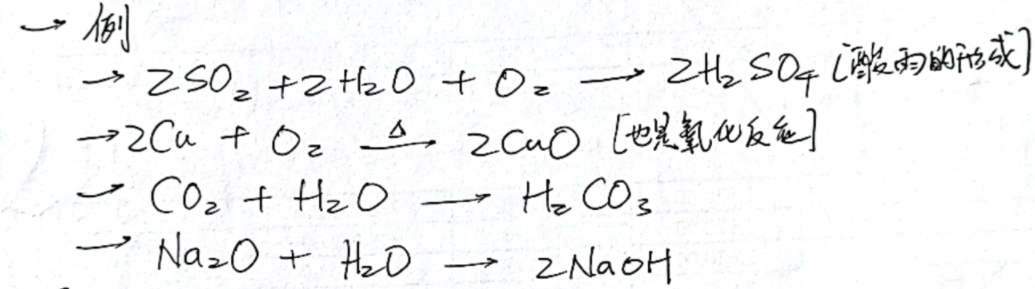 → 例
→ 2SO₂ + 2H₂O + O₂ → 2H₂SO₄ [酸雨的形成]
→ 2Cu + O₂ —Δ→ 2CuO [也是氧化反应]
→ CO₂ + H₂O → H₂CO₃
→ Na₂O + H₂O → 2NaOH